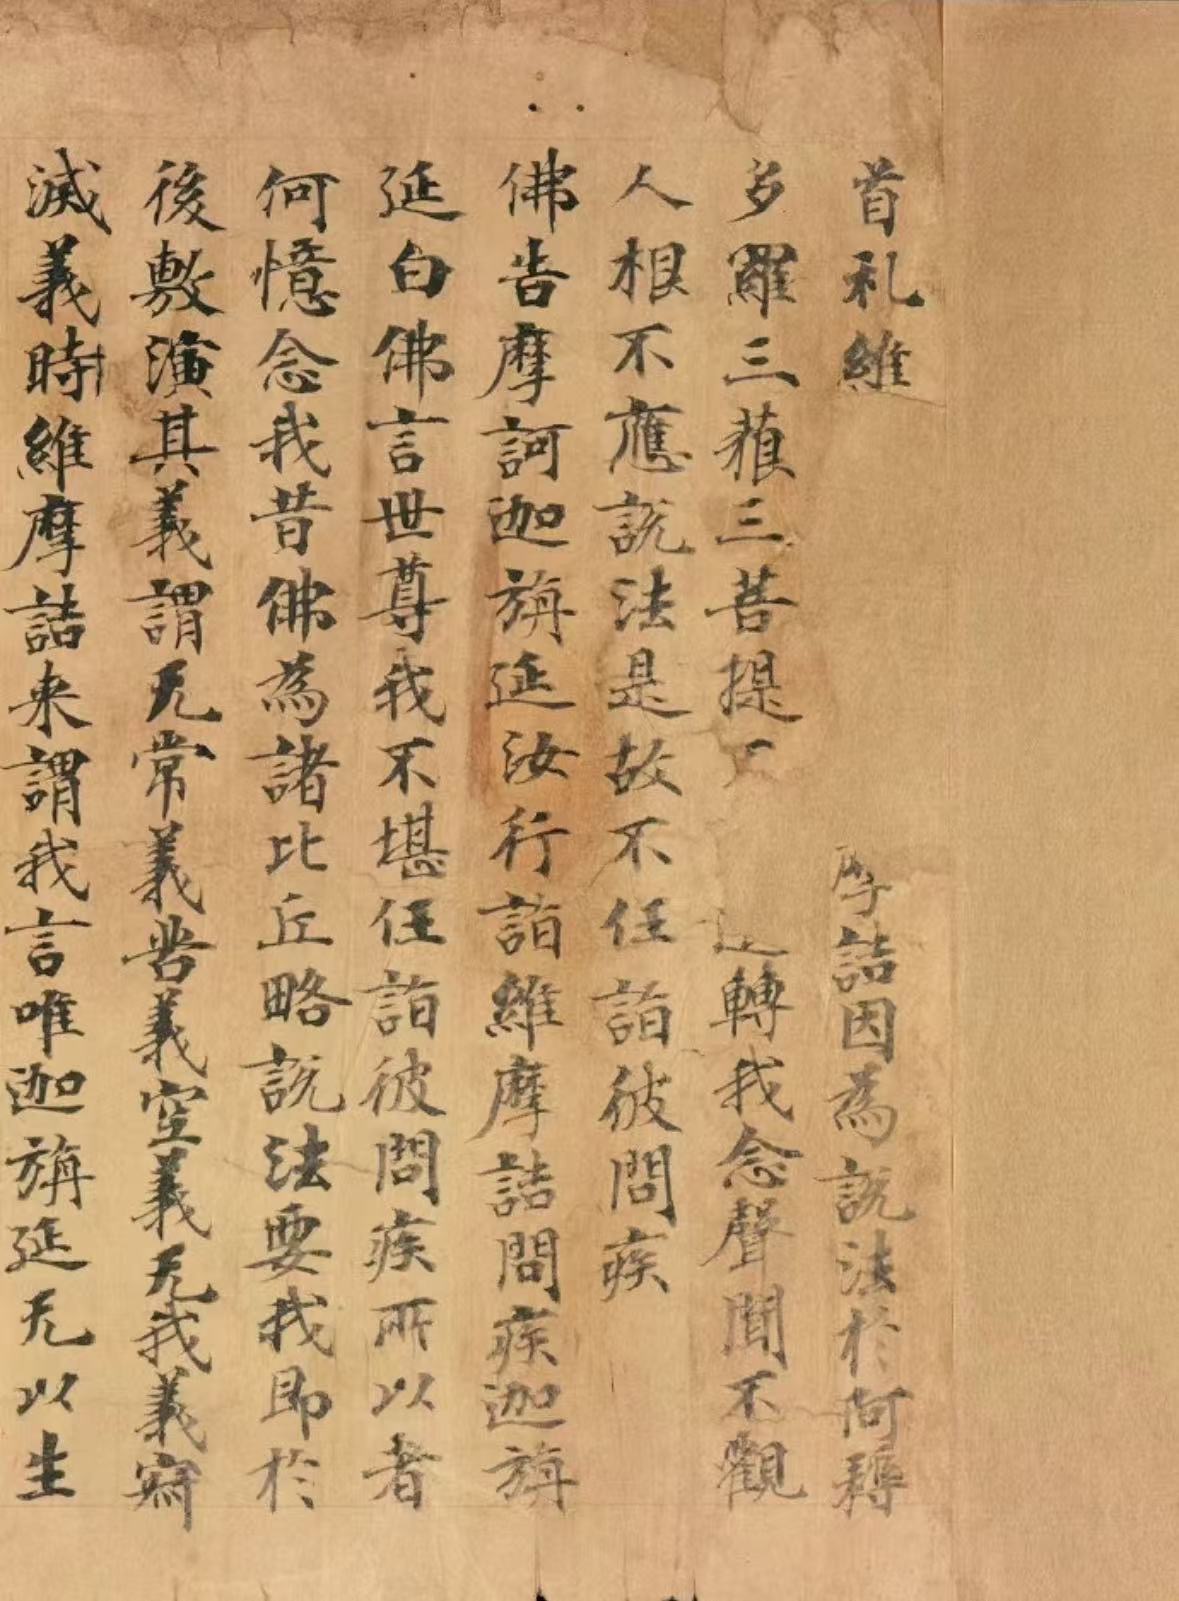 首礼維摩詰因為說法於阿耨
多羅三藐三菩提不退轉我念聲聞不觀
人根不應說法是故不任詣彼問疾
佛告摩訶迦旃延汝行詣維摩詰問疾迦旃
延白佛言世尊我不堪任詣彼問疾所以者
何憶念我昔佛為諸比丘略說法要我即於
後敷演其義謂无常義苦義空義无我義寂
滅義時維摩詰来謂我言唯迦旃延无以生